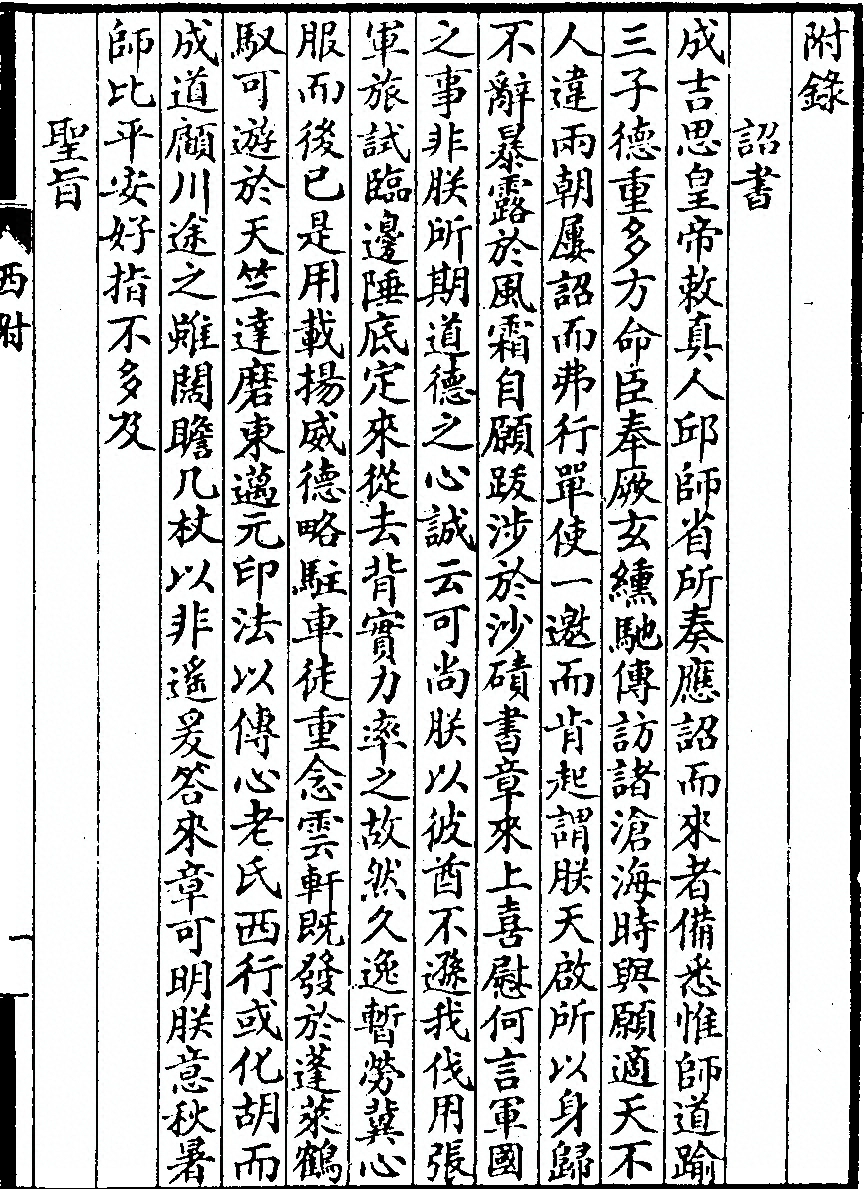 附錄
詔書
成吉思皇帝敕真人邱師省所奏應詔而來者備悉惟師道踰
三子德重多方命臣奉厥玄纁馳傳訪諸滄海時與願適天不
人違兩朝屢詔而弗行單使一邀而肯起謂朕天啟所以身歸
不辭暴露於風霜自願跋涉於沙磧書章來上喜慰何言軍國
之事非朕所期道德之心誠云可尚朕以彼酋不遜我伐用張
軍旅試臨邊陲底定來從去背實力率之故然久逸暫勞冀心
服而後已是用載揚威德略駐車徒重念雲軒既發於蓬萊鶴
馭可遊於天竺達磨東邁元印法以傳心老氏西行或化胡而
成道顧川途之雖闊瞻几杖以非遙爰答來章可明朕意秋暑
師比平安好指不多及
聖旨
西附
一